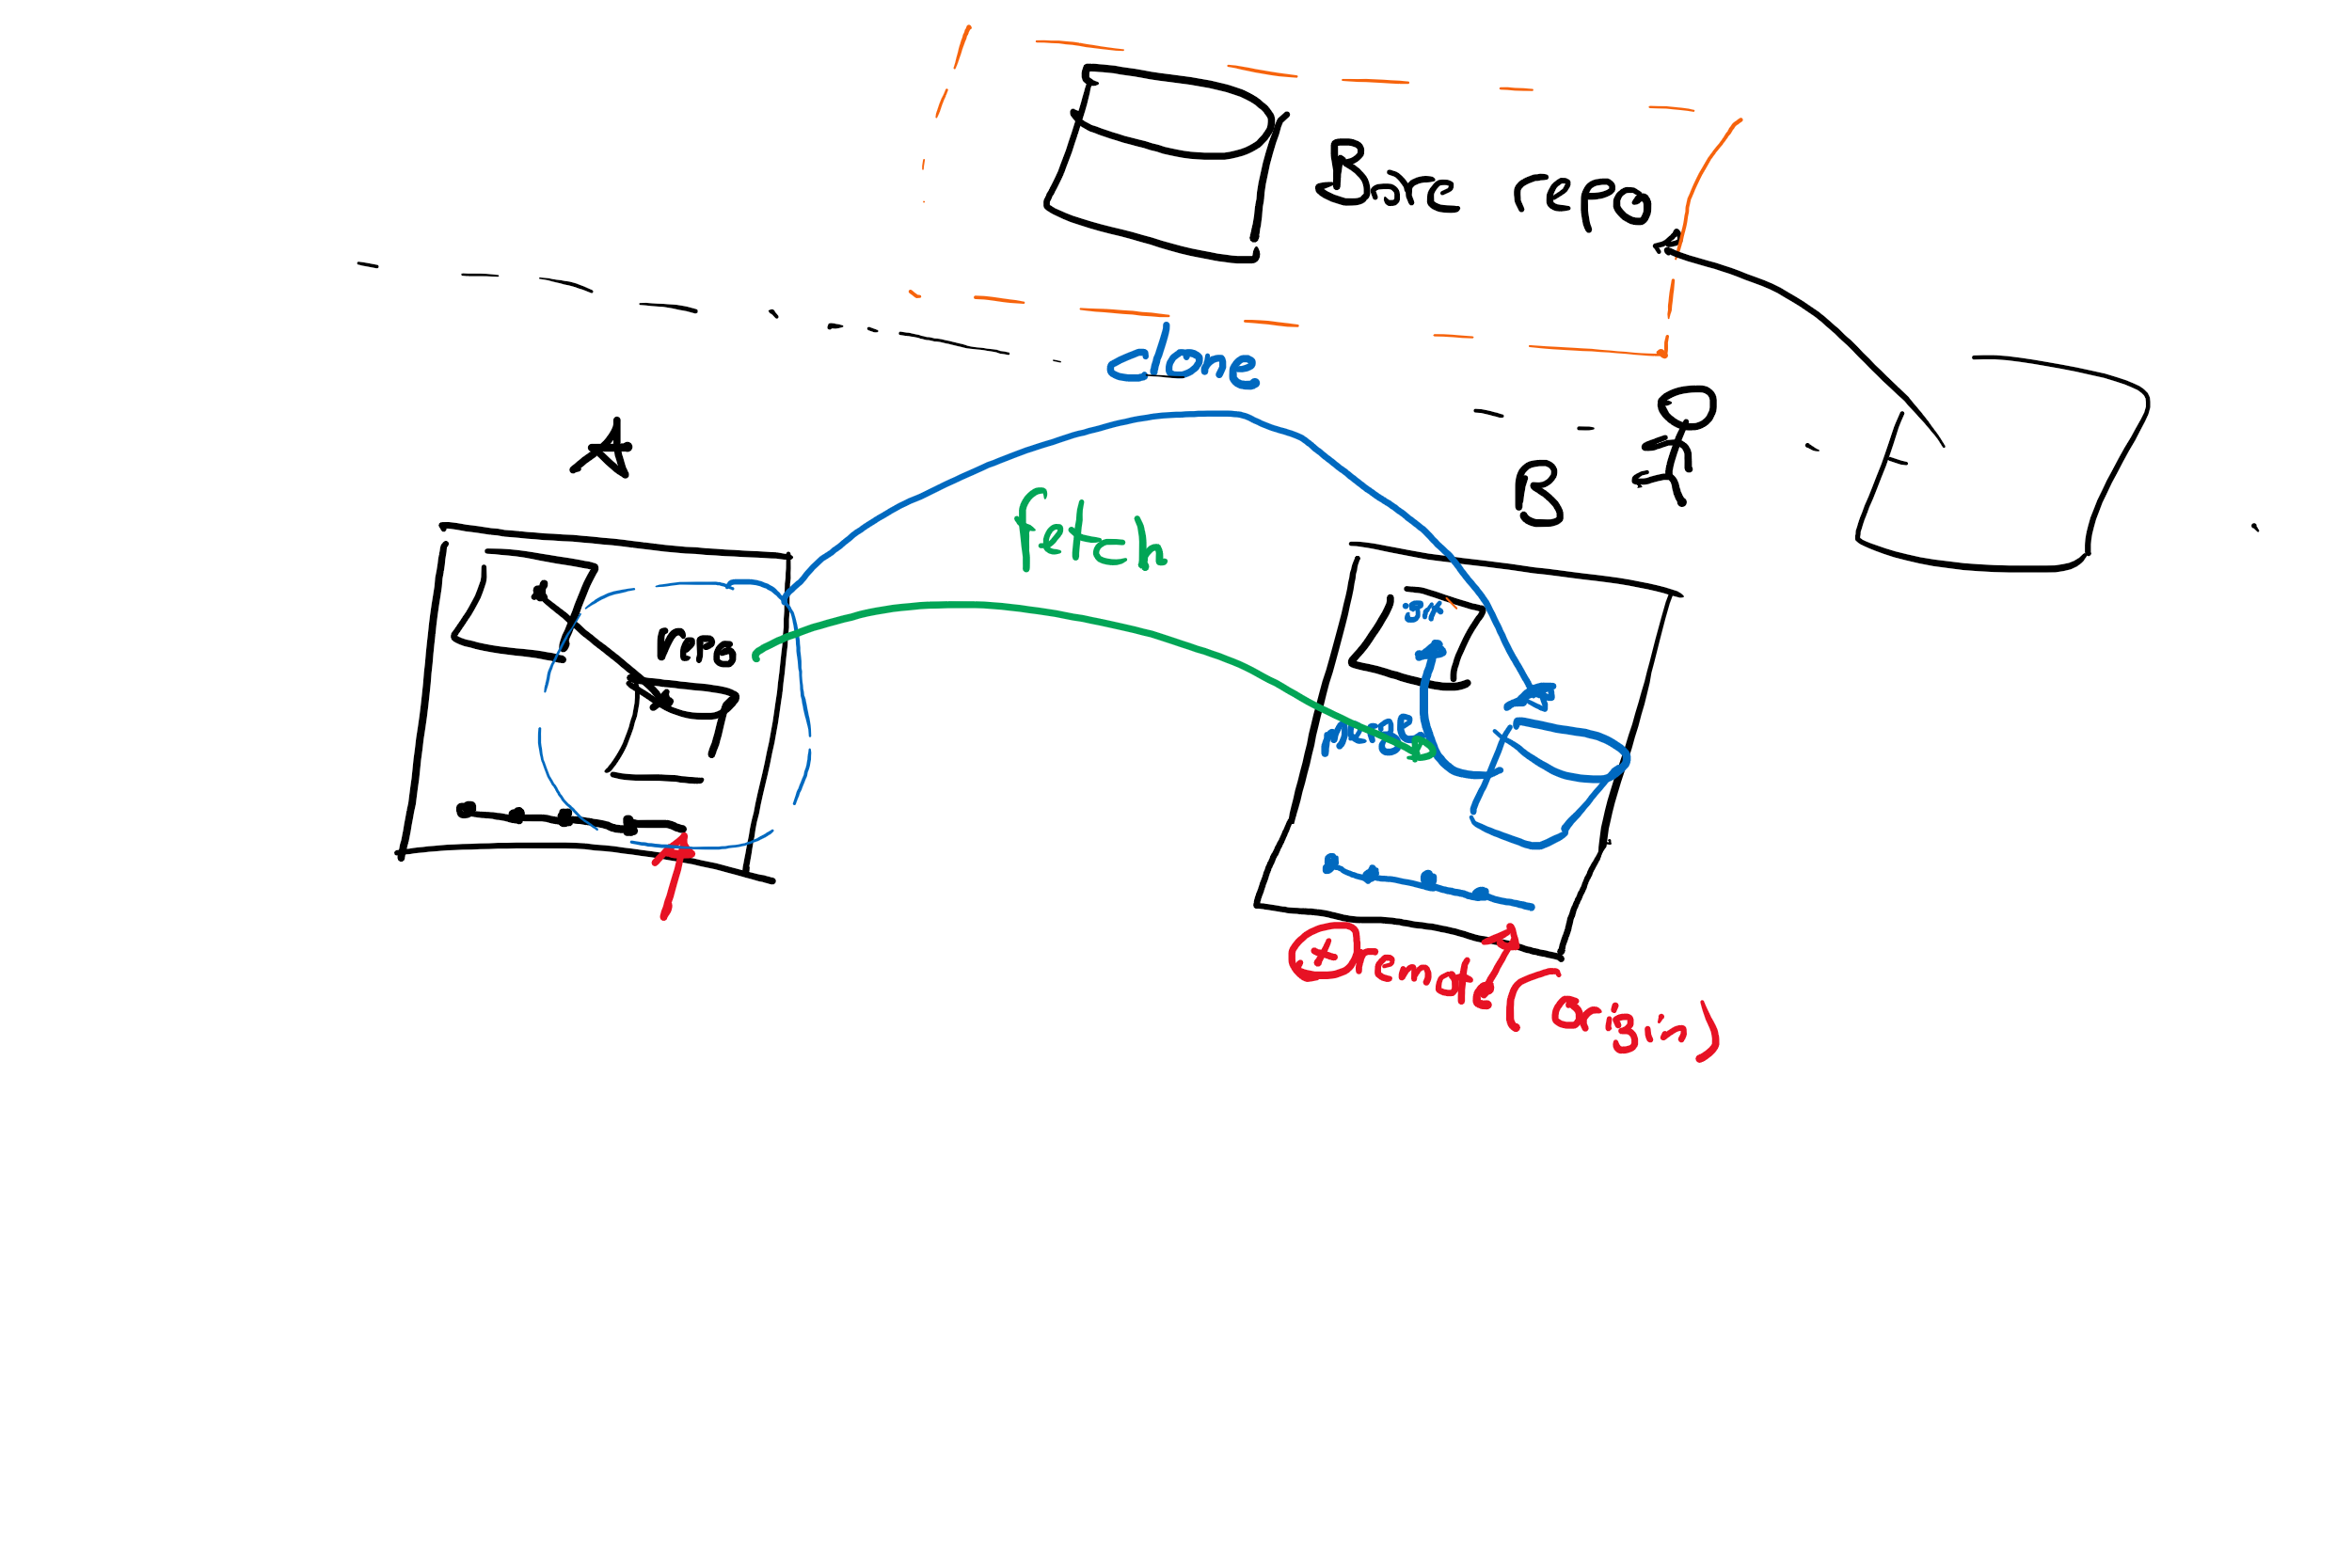 Bare repo
clone
A
B
fetch
repo
dir
merge
remote (origin)